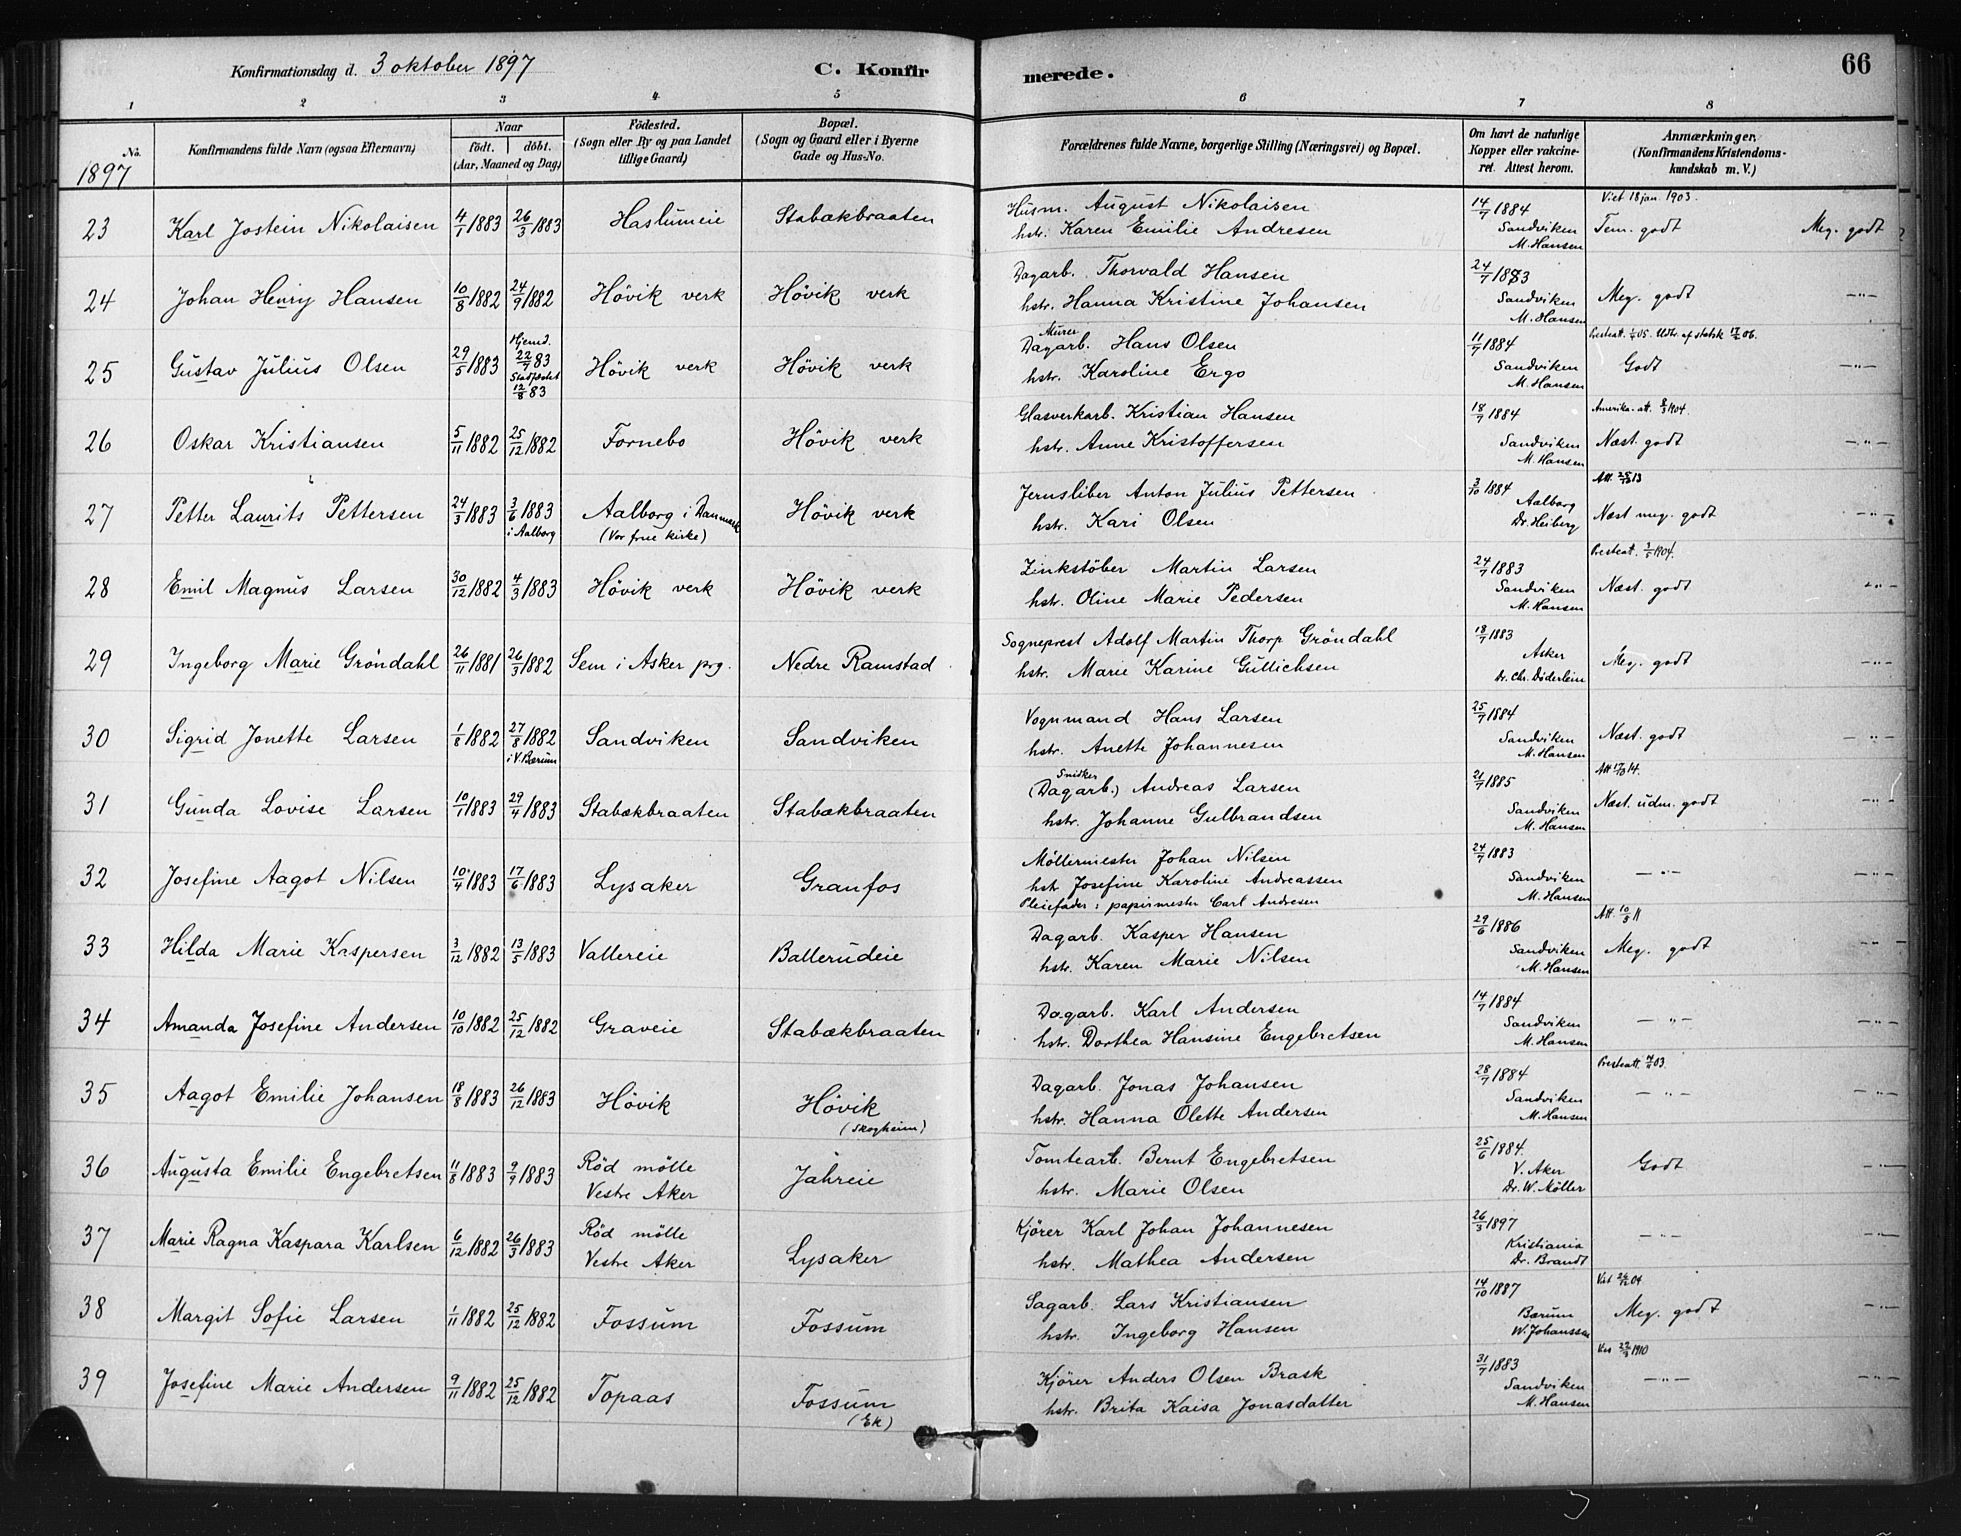 Konfirmationsdag d. 3 oktober 1897
C. Konfirmerede.
66
1 2 3 4 5 6 7 8
No. 1897
Konfirmandens fulde Navn (ogsaa Efternavn)
Naar
födt. döbt.
(Aar, Maaned og Dag)
Födested.
(Sogn eller By og paa Landet tillige Gaard)
Bopæl.
(Sogn og Gaard eller i Byerne Gade og Hus-No.
Forældrenes fulde Navne, borgerlige Stilling (Næringsvei) og Bopæl.
Om havt de naturlige Kopper eller vakcineret. Attest herom.
Anmærkninger.
(Konfirmandens Kristendomskundskab m. V.)
23 Karl Jostein Nikolaisen 4/1 1883 26/3 1883 Haslumeie Stabækbraaten
Husm. August Nikolaisen
hstr. Karen Emilie Andresen
14/7 1884 Sandviken M. Hansen
Viet 18 jan. 1903.
Tem. godt Meg. godt
24 Johan Henry Hansen 10/8 1882 24/9 1882 Hövik verk Hövik verk
Dagarb. Thorvald Hansen
hstr. Hanna Kristine Johansen
24/7 1883 Sandviken M. Hansen
Meg. godt —"—
25 Gustav Julius Olsen 29/5 1883 Hjemd. 22/7 83 Stadfæstet 12/8 83 Hövik verk Hövik verk
Murer
Dagarb. Hans Olsen
hstr. Karoline Ergo
11/7 1884 Sandviken M. Hansen
Godt —"—
26 Oskar Kristiansen 5/11 1882 25/12 1882 Fornebo Hövik verk
Glasverkarb. Kristian Hansen
hstr. Anne Kristoffersen
18/7 1884 Sandviken M. Hansen
Amerika-att. 1904.
Næst. godt —"—
27 Petter Laurits Pettersen 24/3 1883 3/6 1883 i Aalborg Aalborg i Danmark (Vor frue kirke) Hövik verk
Jernsliber Anton Julius Pettersen
hstr. Kari Olsen
3/10 1884 Aalborg Dr. Heiberg
Att. 13
Næst meg. godt —"—
28 Emil Magnus Larsen 30/12 1882 4/3 1883 Hövik verk Hövik verk
Zinkstöber Martin Larsen
hstr. Oline Marie Pedersen
24/7 1883 Sandviken M. Hansen
Presteatt. 1904.
Næst. godt —"—
29 Ingeborg Marie Gröndahl 26/11 1881 26/3 1882 Sem i Asker prg. Nedre Ramstad
Sogneprest Adolf Martin Thorp Gröndahl
hstr. Marie Karine Gullichsen
18/7 1883 Asker Dr. Chr. Döderlein
Meg. godt —"—
30 Sigrid Jonette Larsen 1/8 1882 27/8 1882 i V. Bærum Sandviken Sandviken
Vognmand Hans Larsen
hstr. Anette Johannesen
25/7 1884 Sandviken M. Hansen
Næst. godt —"—
31 Gunda Lovise Larsen 10/1 1883 29/4 1883 Stabækbraaten Stabækbraaten
Snidker
(Dagarb.) Andreas Larsen
hstr. Johanne Gulbrandsen
21/7 1885 Sandviken M. Hansen
Att 14.
Næst. udm. godt —"—
32 Josefine Aagot Nilsen 10/4 1883 17/6 1883 Lysaker Granfos
Möllermester Johan Nilsen
hst. Josefine Karoline Andreassen
Pleiefader: papirmester Carl Andresen
24/7 1883 Sandviken M. Hansen
—"— —"—
33 Hilda Marie Kaspersen 3/12 1882 13/5 1883 Vallereie Ballerudeie
Dagarb. Kasper Hansen
hstr. Karen Marie Nilsen
29/6 1886 Sandviken M. Hansen
Att. 10/5 11
Meg. godt —"—
34 Amanda Josefine Andersen 10/10 1882 25/12 1882 Graveie Stabækbraaten
Dagarb. Karl Andersen
hstr. Dorthea Hansine Engebretsen
14/7 1884 Sandviken M. Hansen
—"— —"—
35 Aagot Emilie Johansen 18/8 1883 26/12 1883 Hövik Hövik (Skogheim)
Dagarb. Jonas Johansen
hstr. Hanna Olette Andersen
28/7 1884 Sandviken M. Hansen
Presteatt. 03.
—"— —"—
36 Augusta Emilie Engebretsen 11/8 1883 9/9 1883 Röd mölle Vestre Aker Jahreie
Tomtearb. Bernt Engebretsen
hstr. Marie Olsen
25/6 1884. V. Aker Dr. W. Möller
Godt —"—
37 Marie Ragna Kaspara Karlsen 6/12 1882 26/3 1883 Röd mölle Vestre Aker Lysaker
Kjörer Karl Johan Johannesen
hstr. Mathea Andersen
26/3 1897 Kristiania Dr. Brandt
—"— —"—
38 Margit Sofie Larsen 1/11 1882 25/12 1882 Fossum Fossum
Sagarb. Lars Kristiansen
hstr. Ingeborg Hansen
14/10 1887 Bærum W. Johanssen
Viet 04
Meg. godt —"—
39 Josefine Marie Andersen 9/11 1882 25/12 1882 Topaas Fossum (Ek)
Kjörer Anders Olsen Brask
hstr. Brita Kaisa Jonasdatter
31/7 1883 Sandviken M. Hansen
1910
—"— —"—